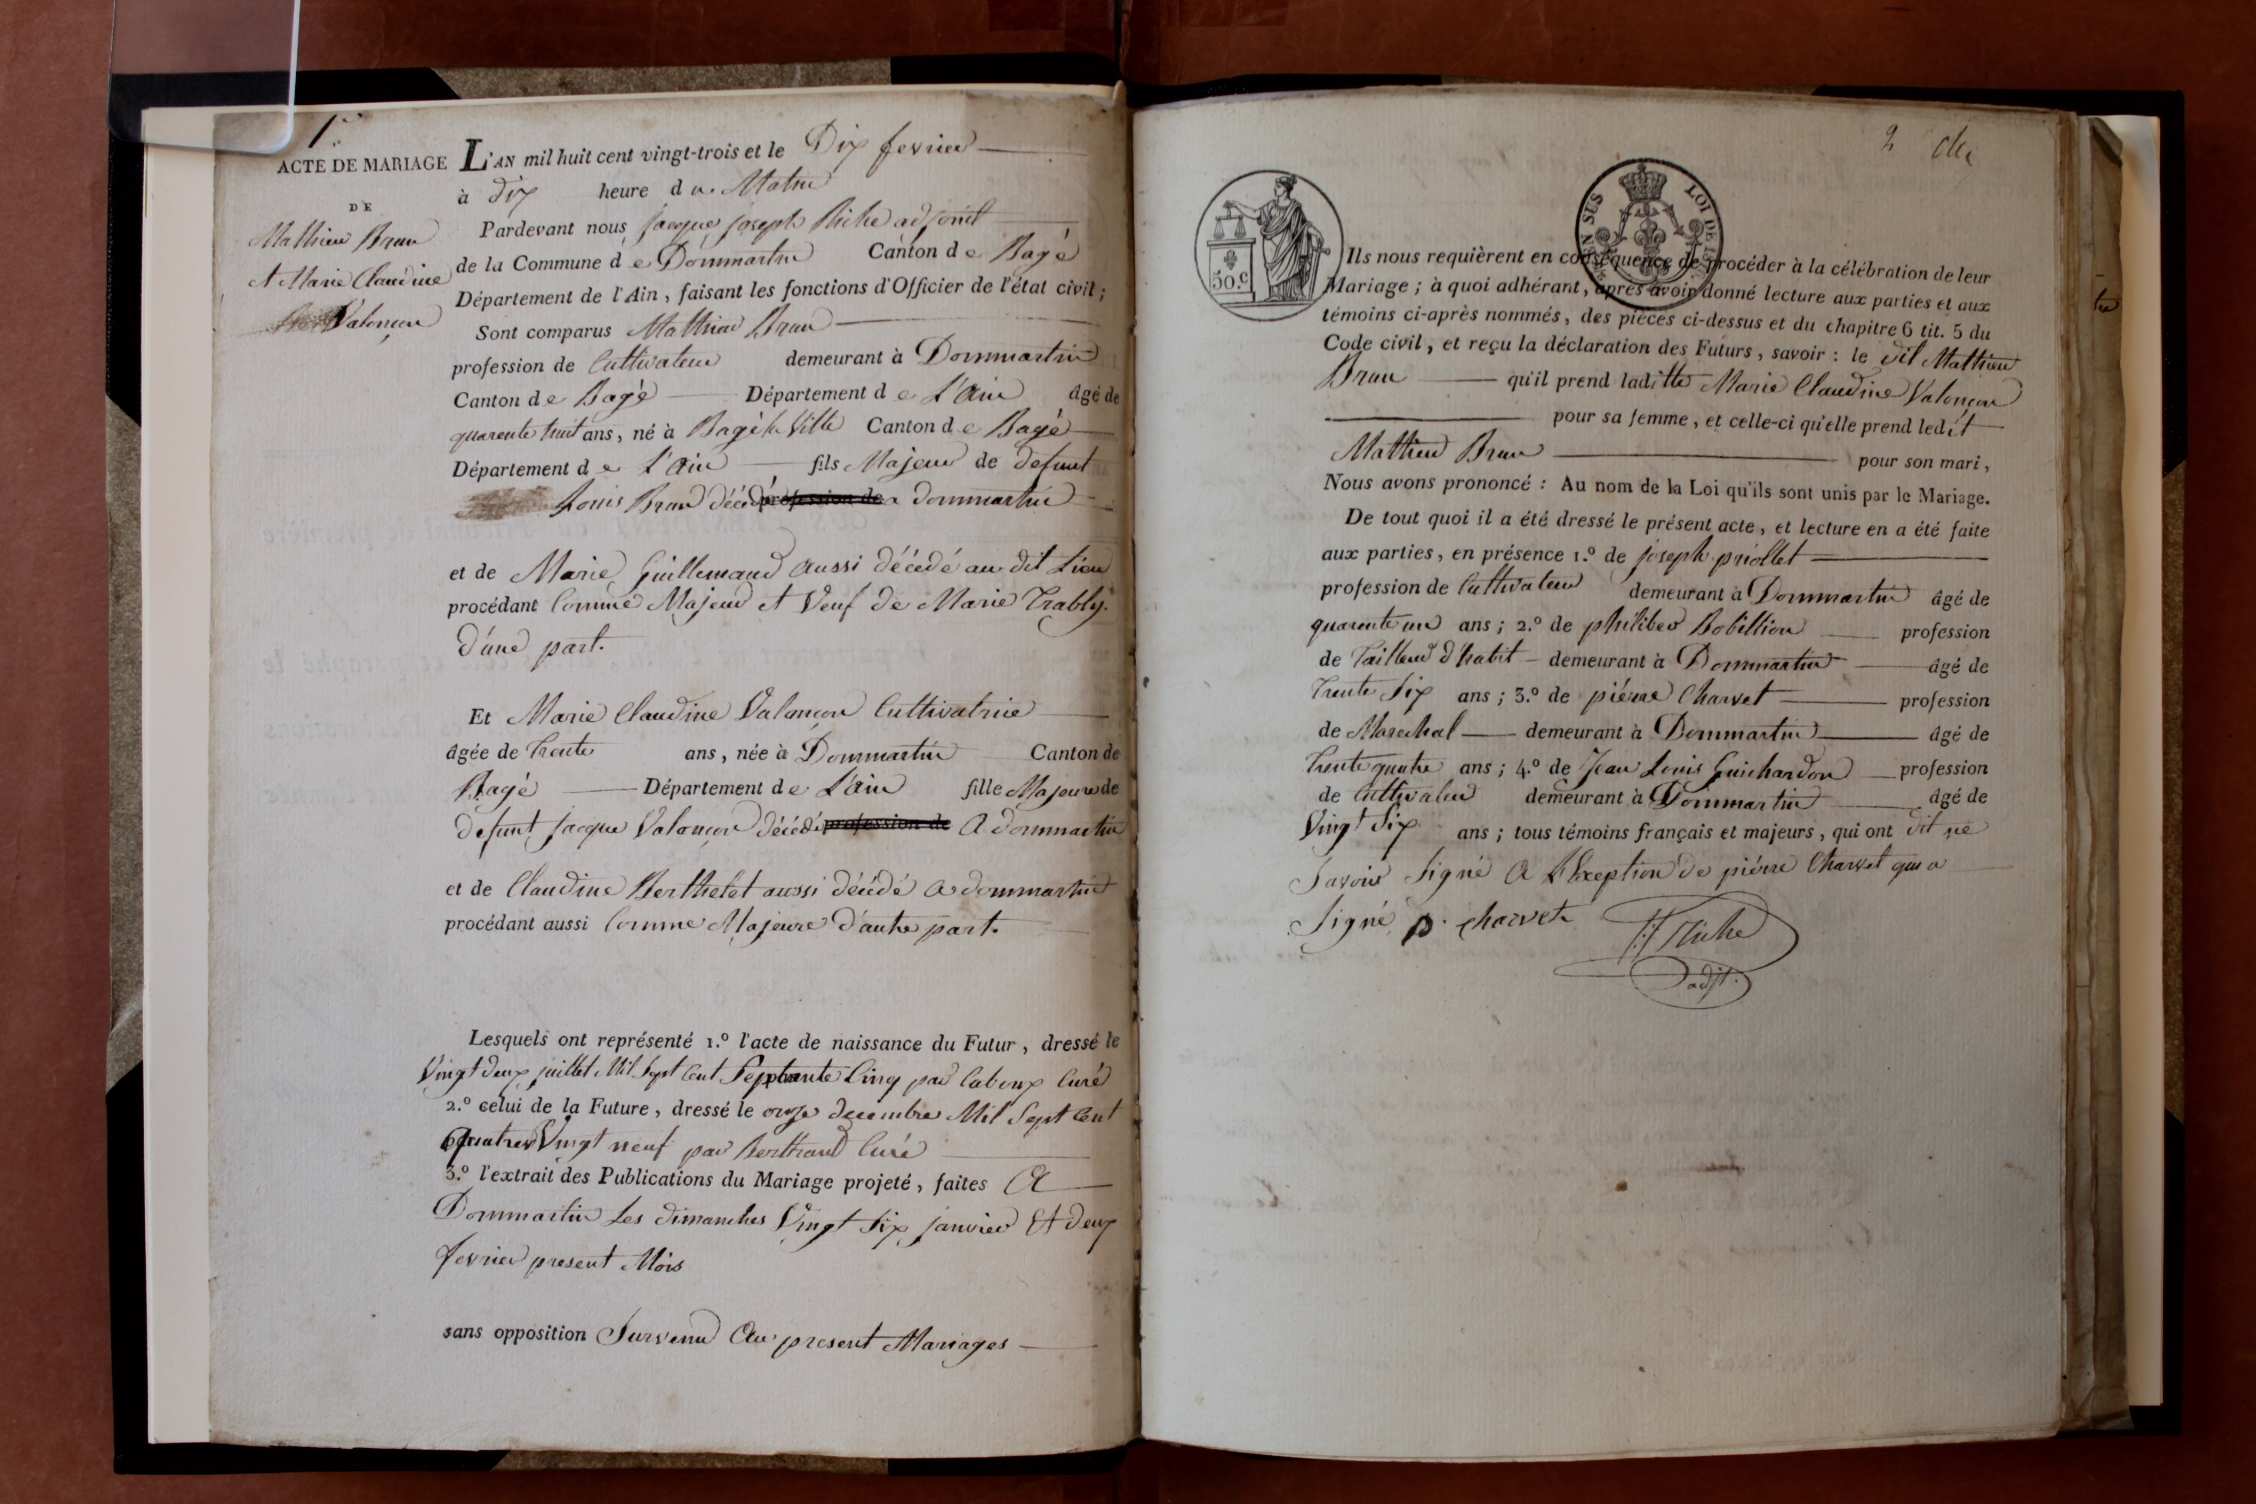 1er
ACTE DE MARIAGE
DE
Mathieu Brun
et Marie Claudine
Valonçon
L'AN mil huit cent vingt-trois et le Dix fevrier
à dix heure du Matin
Pardevant nous jacque joseph Riche adjoint
de la Commune de Dommartin Canton de Bagé
Département de l'Ain, faisant les fonctions d'Officier de l'état civil;
Sont comparus Mathieu Brun
profession de Cultivateur demeurant à Dommartin
Canton de Bagé Département de L'ain âgé de
quarente huit ans, né à Bagé la Ville Canton de Bagé
Département de L'ain fils Majeur de defunt
Louis Brun décédé profession de a dommartin
et de Marie Guillemaud aussi décédé au dit Lieu
procédant Comme Majeur et Veuf de Marie Trably.
d'une part.
Et Marie Claudine Valonçon Cultivatrice
âgée de trente ans, née à Dommartin Canton de
Bagé Département de L'ain fille Majeure de
defunt jacque Valonçon décédé profession de A dommartin
et de Claudine Berthelet aussi décédé a dommartin
procédant aussi Comme Majeure d'autre part.
Lesquels ont représenté 1.º l'acte de naissance du Futur, dressé le
Vingt deux juillet Mil Sept Cent Septante Cinq par Curé
2.º celui de la Future, dressé le onze decembre Mil Sept Cent
quatre Vingt neuf par Berthaud Curé
3.º l'extrait des Publications du Mariage projeté, faites A
Dommartin Les dimanches Vingt Six janvier Et deux
fevrier present Mois
sans opposition Survenu Au present Mariages
2
50 c.
LOI DE
Ils nous requièrent en conséquence de procéder à la célébration de leur
Mariage; à quoi adhérant, après avoir donné lecture aux parties et aux
témoins ci-après nommés, des pièces ci-dessus et du chapitre 6 tit. 5 du
Code civil, et reçu la déclaration des Futurs, savoir: le dit Mathieu
Brun qu'il prend laditte Marie Claudine Valonçon
pour sa femme, et celle-ci qu'elle prend ledit
Mathieu Brun pour son mari,
Nous avons prononcé: Au nom de la Loi qu'ils sont unis par le Mariage.
De tout quoi il a été dressé le présent acte, et lecture en a été faite
aux parties, en présence 1.º de joseph priollet
profession de Cultivateur demeurant à Dommartin âgé de
quarente un ans; 2.º de philiber Bobillion profession
de Tailleur d'habit demeurant à Dommartin âgé de
trente Six ans; 3.º de piérre Charvet profession
de Marechal demeurant à Dommartin âgé de
trente quatre ans; 4.º de Jean Louis Guichardon profession
de Cultivateur demeurant à Dommartin âgé de
Vingt Six ans; tous témoins français et majeurs, qui ont dit ne
Savoir Signé A L'Exeption de piérre Charvet qui a
Signé p. charvet
Riche
adjt.